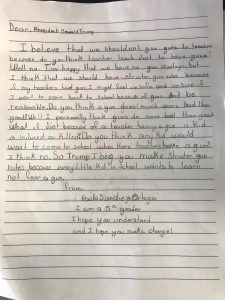 Dear, President Donald Trump
I believe that we should not give guns to teachers
because do you think teacher teach dont to have guns?
Well no. I'm happy that we have not gun
I think that we should have stricter gun rules because
if my teachers had guns I might feel unsafe and unsure if
I want to come back to school because of guns. And be
reasonable. Do you think a gun does much more bad than
good? Well I personally think guns do more bad than good.
What if but because of a teacher having a gun a kid
an injured or killed? Do you think any kid would
want to come to school when there teachers have a gun?
I think no. So Trump I beg you make stricter gun
rules because every little kid in school wants to learn
not fear a gun.
From,
Sanchez Ortega
I am a 5th grader
I hope you understand
and I hope you make change!